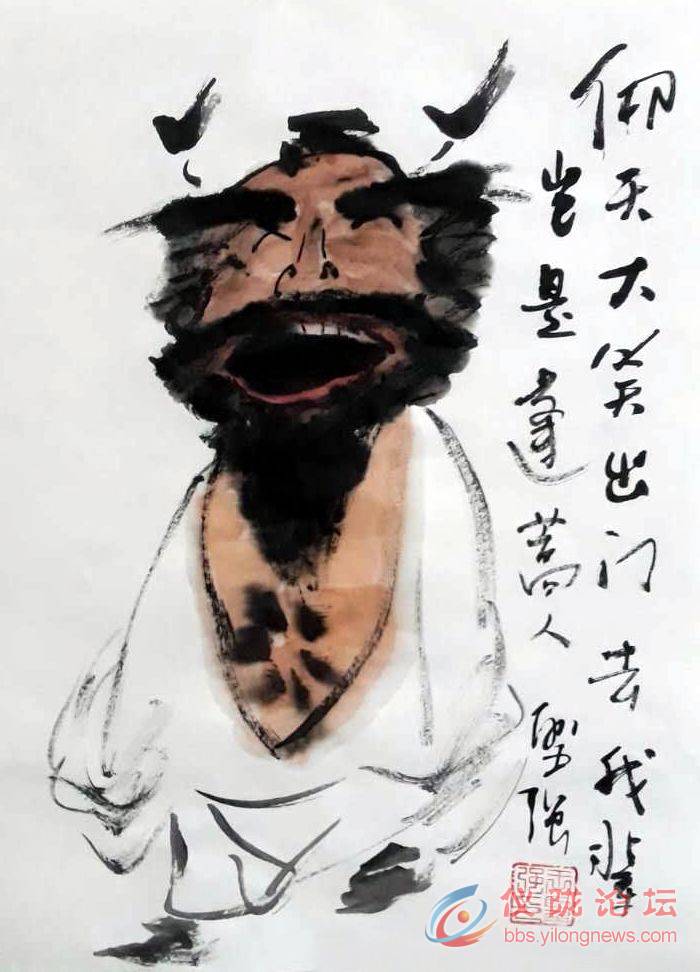 仰天大笑出门去我辈
岂是蓬蒿人
坚强
仪陇论坛
bbs.yilongnews.com